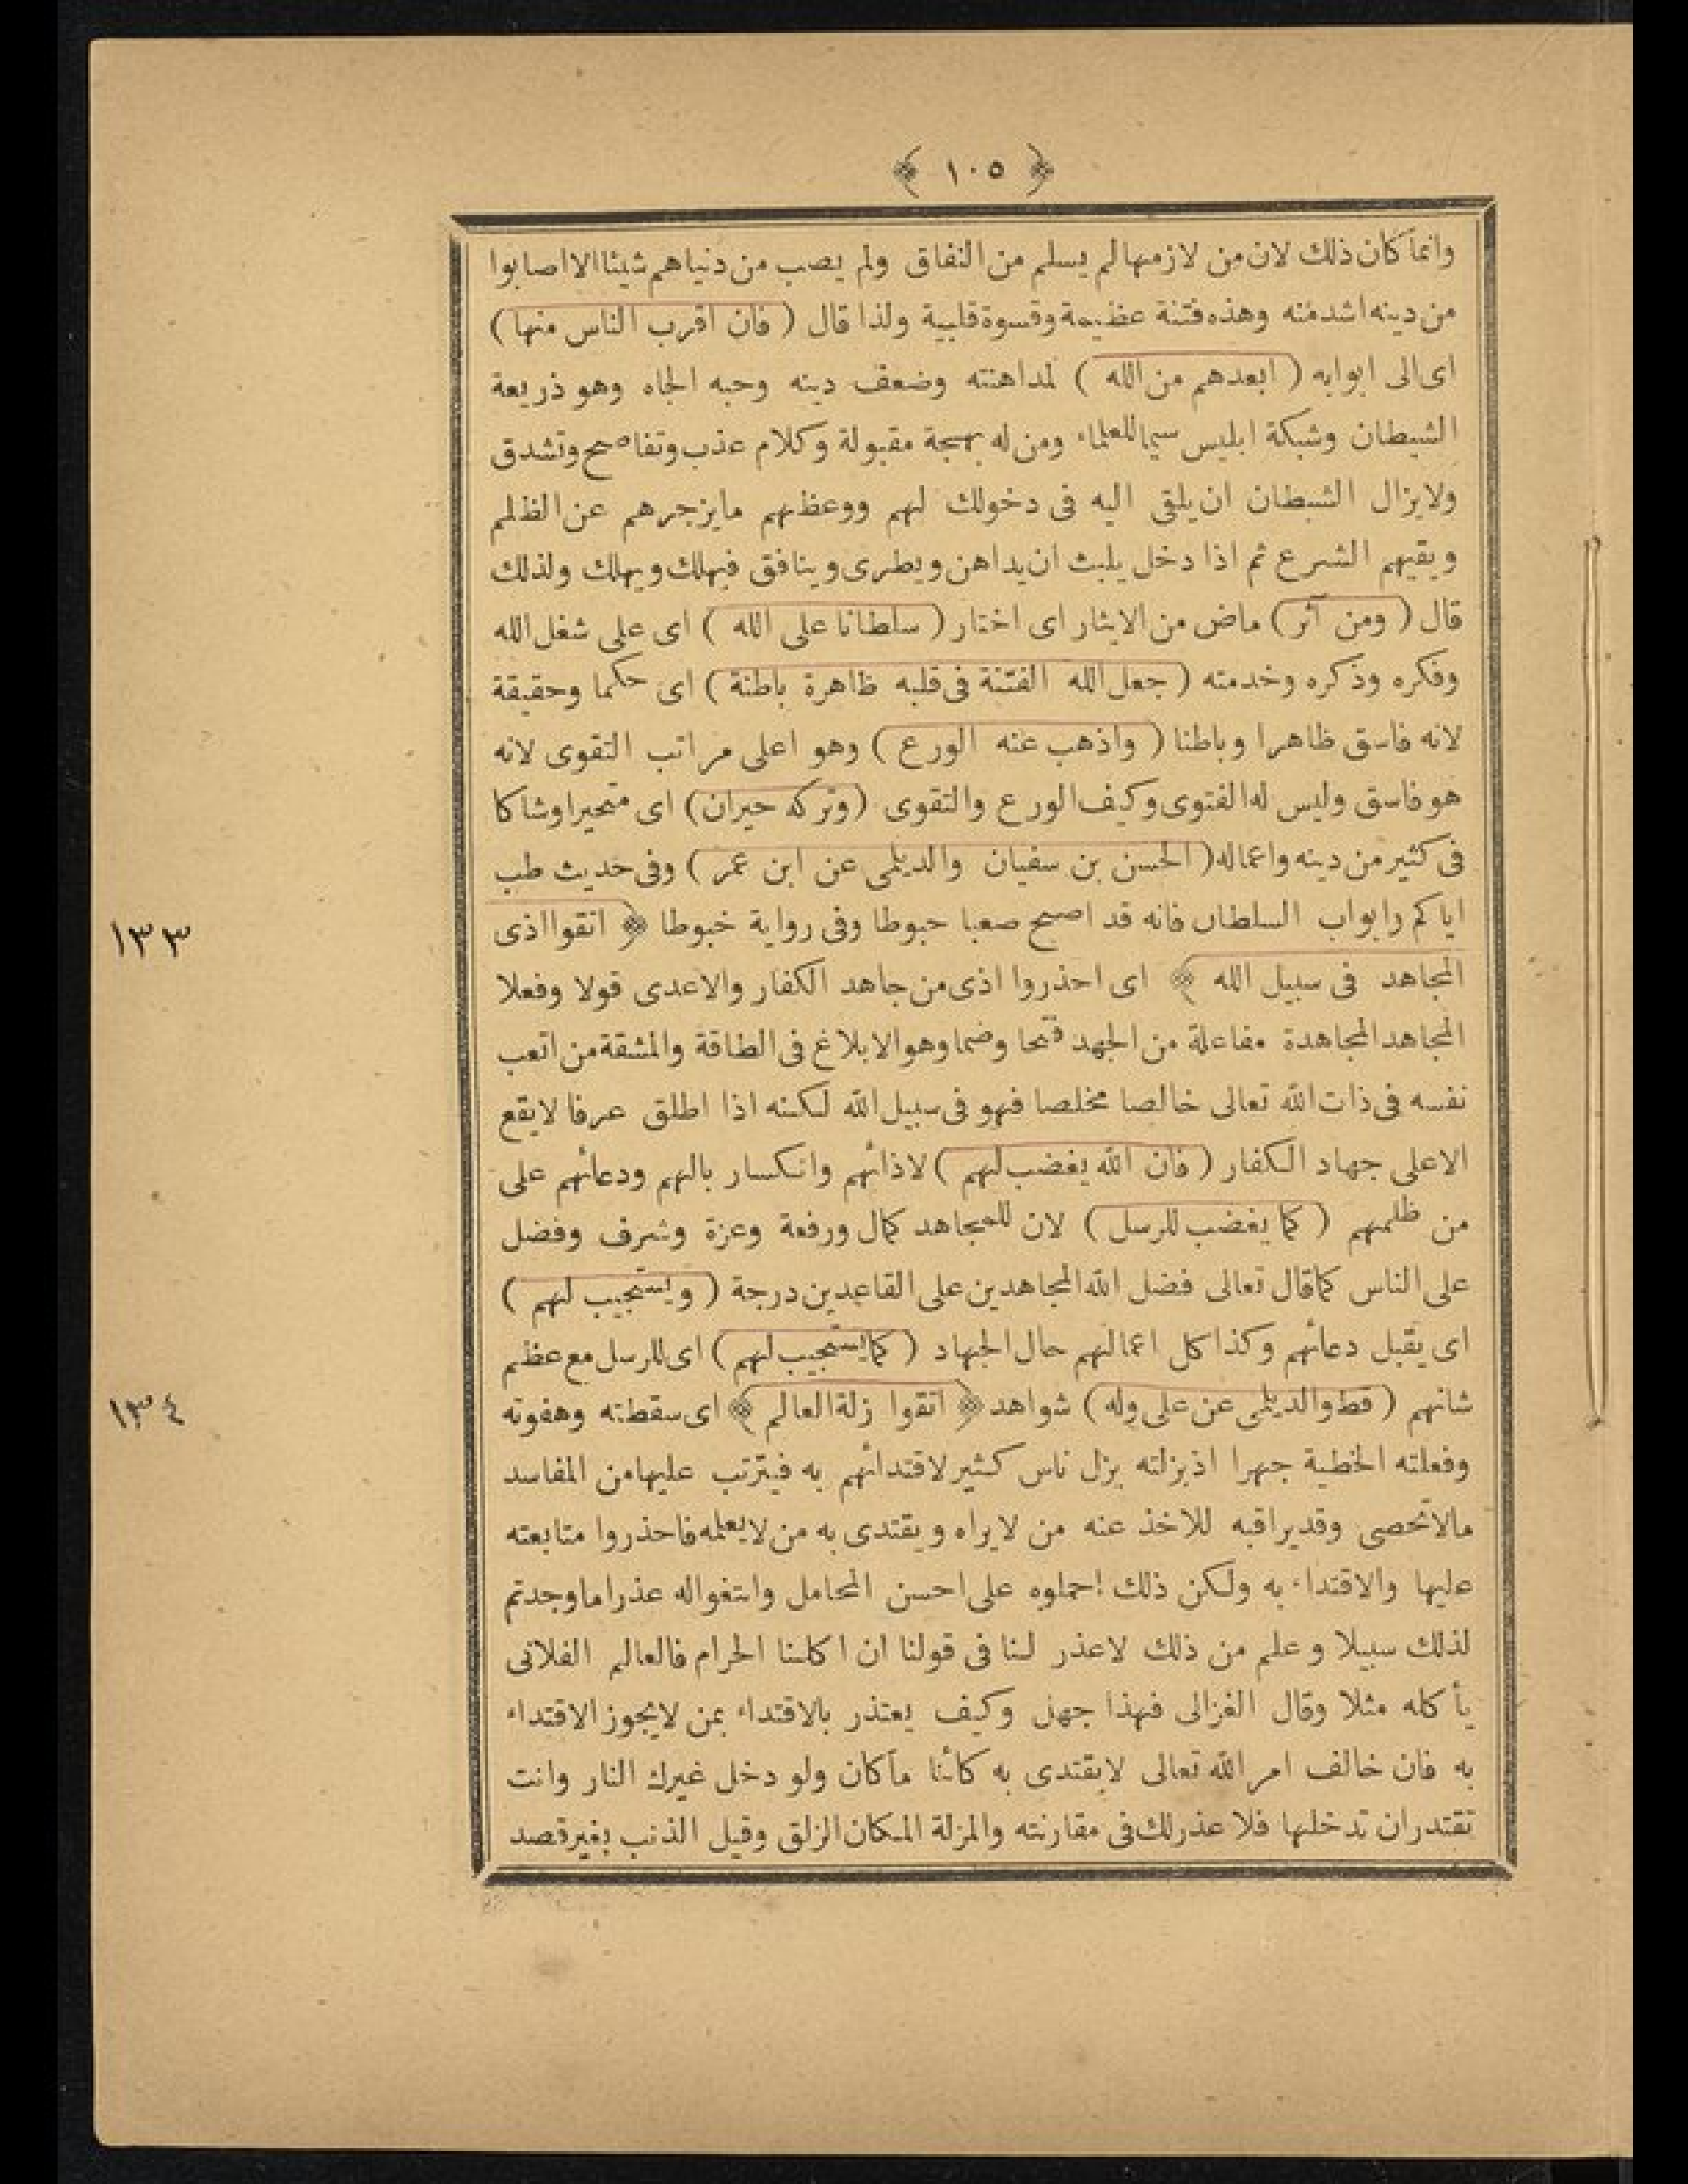 ﴿ ١٠٥ ﴾
وانما كان ذلك لان من لازمها لم يسلم من النفاق ولم يصب من دنياهم شيئا الا اصابوا
من دينه اشد منه وهذه فتنة عظيمة وقسوة قلبية ولذا قال (فان اقرب الناس منها)
اى الى ابوابه (ابعدهم من الله) لمداهنته وضعف دينه وحبه الجاه وهو ذريعة
الشيطان وشبكة ابليس سيما للعلماء ومن له بهجة مقبولة وكلام عذب وتفاصح وتشدق
ولا يزال الشيطان ان يلقى اليه فى دخولك لهم ووعظهم ما يزجرهم عن الظلم
ويقيهم الشرع ثم اذا دخل يلبث ان يداهن ويطرى وينافق فيهلك ويهلك ولذلك
قال (ومن آثر) ماض من الايثار اى اختار (سلطانا على الله) اى على شغل الله
وفكره وذكره وخدمته (جعل الله الفتنة فى قلبه ظاهرة باطنة) اى حكما وحقيقة
لانه فاسق ظاهرا وباطنا (واذهب عنه الورع) وهو اعلى مراتب التقوى لانه
هو فاسق وليس له الفتوى وكيف الورع والتقوى (وتركه حيران) اى متحيرا وشاكا
فى كثير من دينه واعماله (الحسن بن سفيان والديلمى عن ابن عمر) وفى حديث طب
اياكم وابواب السلطان فانه قد اصبح صعبا حبوطا وفى رواية خبوطا ﴿ اتقوا اذى
١٣٣
المجاهد فى سبيل الله ﴾ اى احذروا اذى من جاهد الكفار والاعدى قولا وفعلا
المجاهد المجاهدة مفاعلة من الجهد فتحا وضما وهو الابلاغ فى الطاقة والمشقة من اتعب
نفسه فى ذات الله تعالى خالصا مخلصا فهو فى سبيل الله لكنه اذا اطلق عرفا لا يقع
الا على جهاد الكفار (فان الله يغضب لهم) لاذائهم وانكسار بالهم ودعائهم على
من ظلمهم (كما يغضب للرسل) لان للمجاهد كمال ورفعة وعزة وشرف وفضل
على الناس كما قال تعالى فضل الله المجاهدين على القاعدين درجة (ويستجيب لهم)
اى يقبل دعائهم وكذا كل اعمالهم حال الجهاد (كما يستجيب لهم) اى للرسل مع عظم
شانهم (قط والديلمى عن على وله) شواهد ﴿ اتقوا زلة العالم ﴾ اى سقطته وهفوته
١٣٤
وفعلته الخطية جهرا اذ بزلته يزل ناس كثير لاقتدائهم به فيترتب عليها من المفاسد
مالا تحصى وقد يراقبه للاخذ عنه من لا يراه ويقتدى به من لا يعلمه فاحذروا متابعته
عليها والاقتداء به ولكن ذلك احملوه على احسن المحامل وابتغوا له عذرا ما وجدتم
لذلك سبيلا وعلم من ذلك لا عذر لنا فى قولنا ان اكلنا الحرام فالعالم الفلانى
يأكله مثلا وقال الغزالى فهذا جهل وكيف يعتذر بالاقتداء بمن لا يجوز الاقتداء
به فان خالف امر الله تعالى لا يقتدى به كائنا ما كان ولو دخل غيرك النار وانت
تقتدر ان تدخلها فلا عذر لك فى مقارنته والمزلة المكان الزلق وقيل الذنب بغير قصد